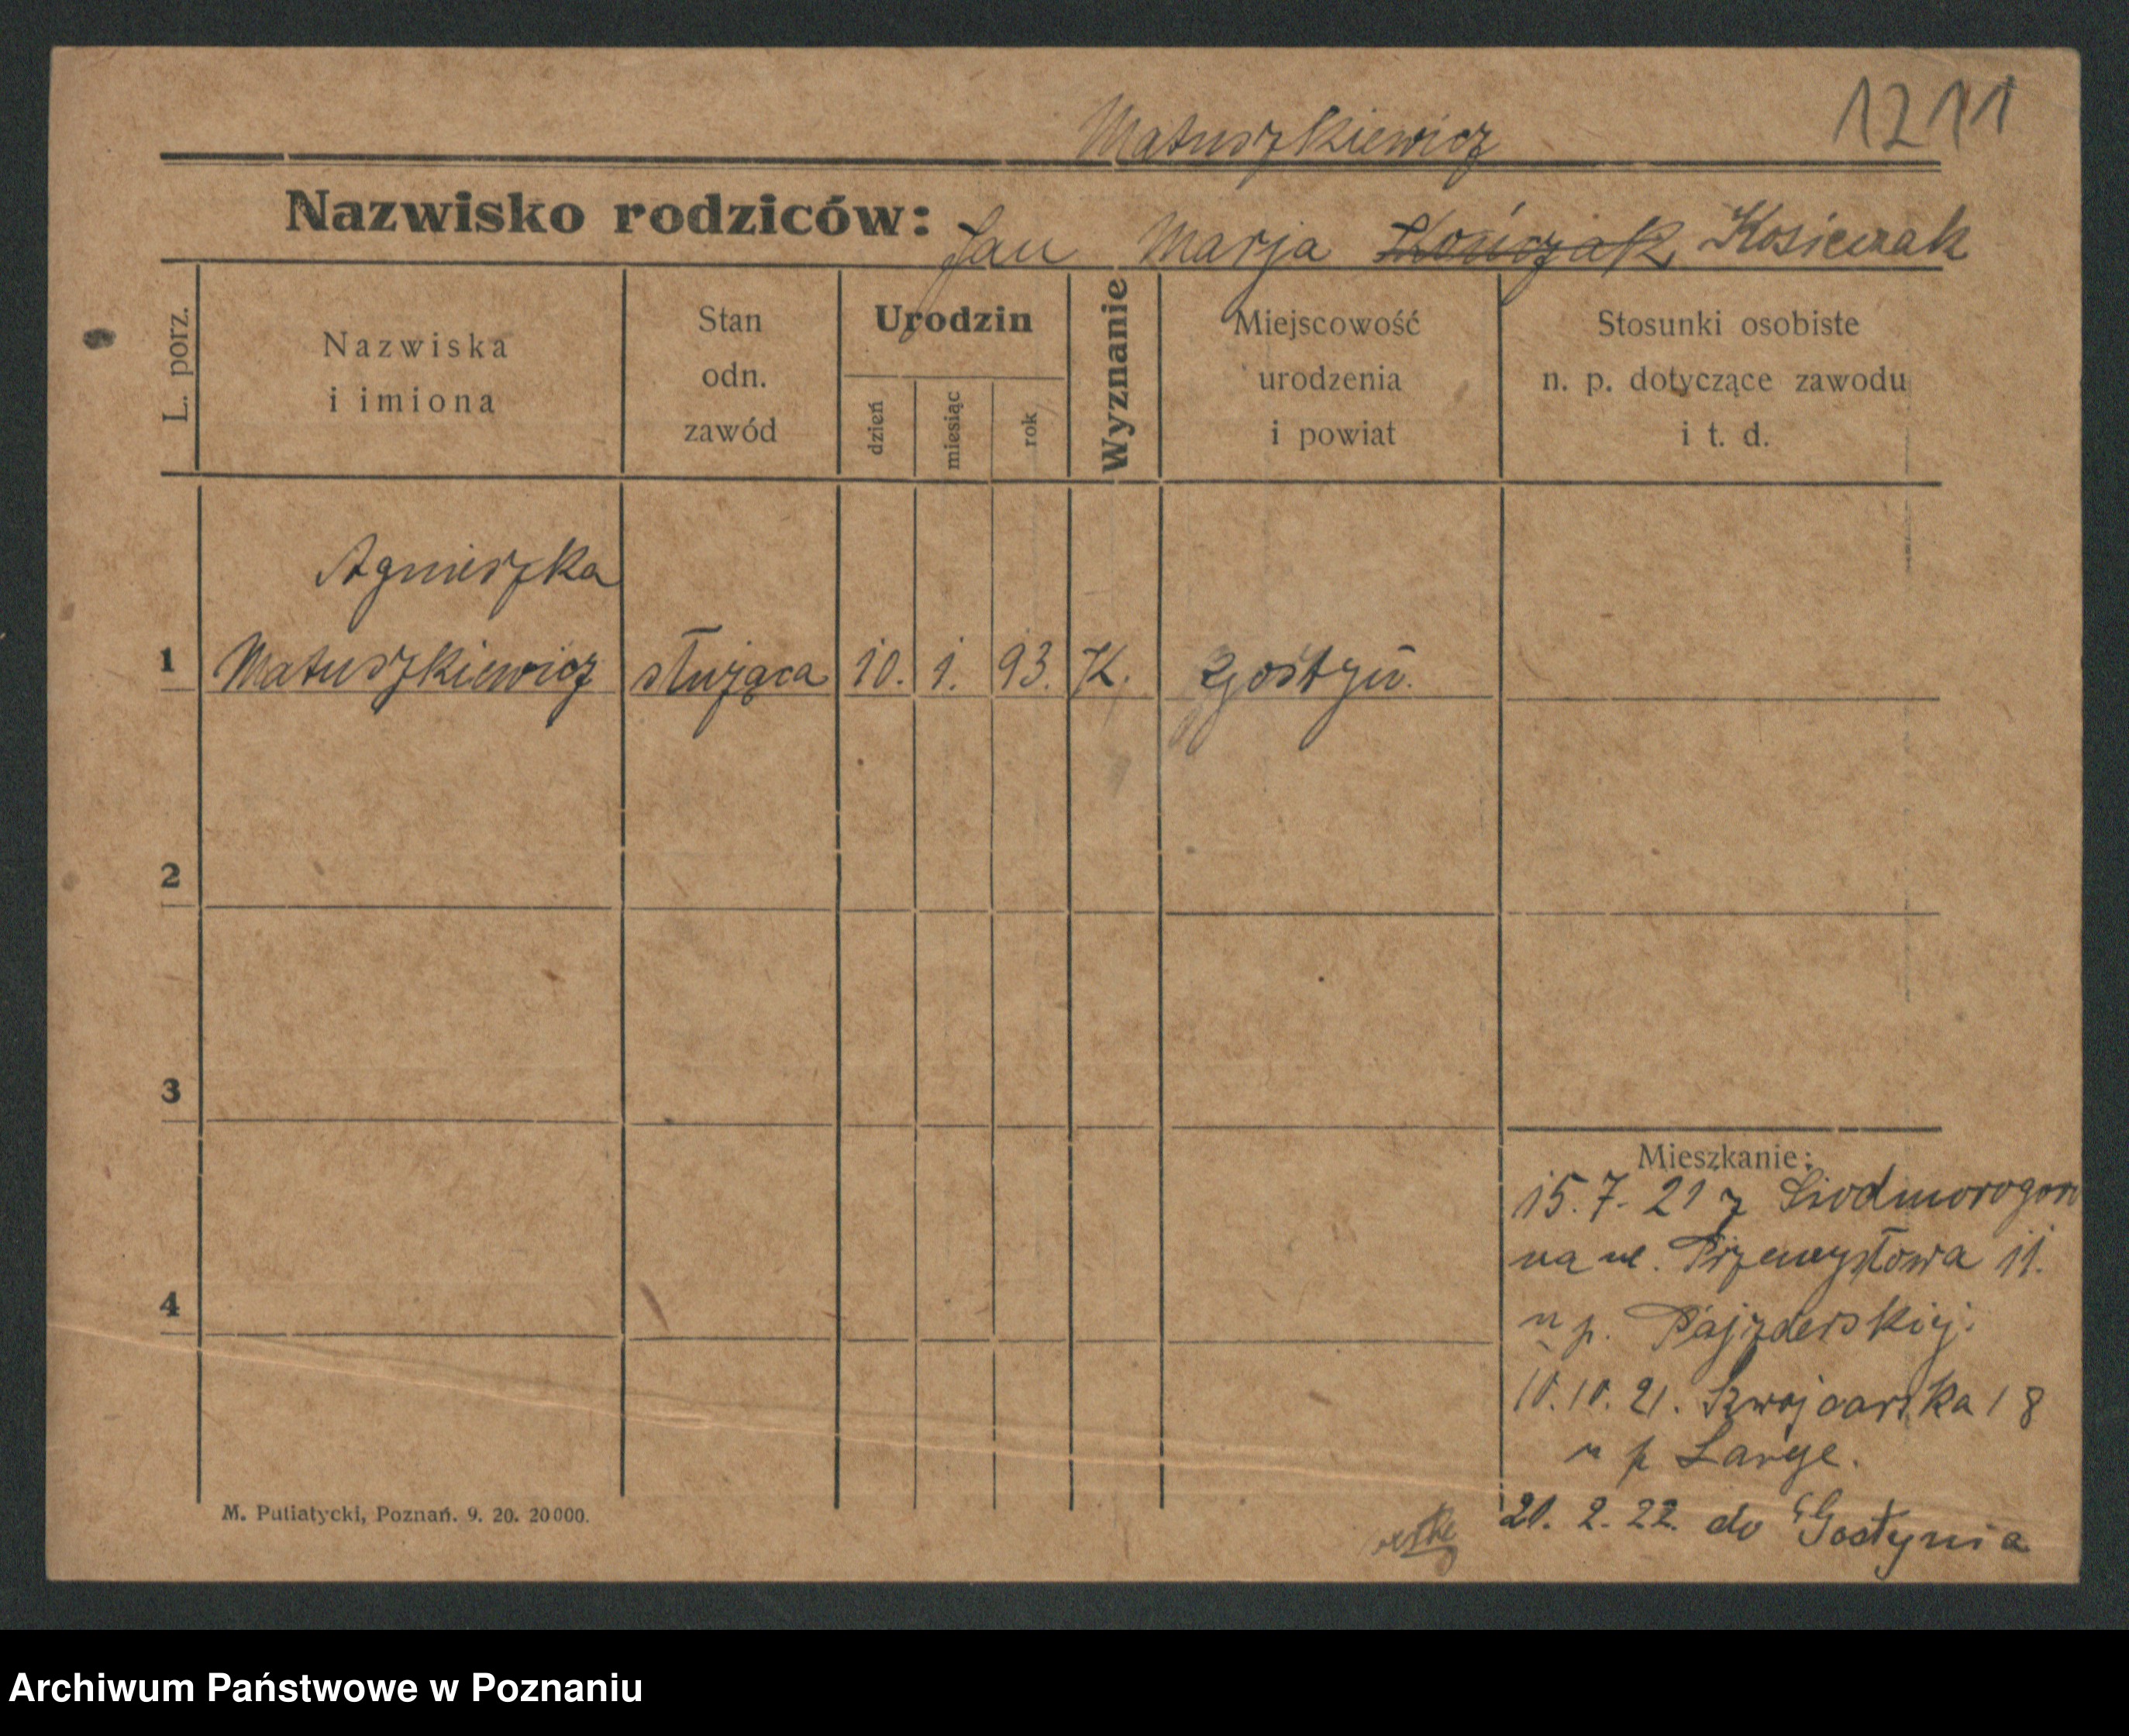 1211
Matuszkiewicz
Nazwisko rodziców: Jan Marja Kończak, Kosiczak
L. porz.
Nazwiska
i imiona
Stan
odn.
zawód
Urodzin
dzień
miesiąc
rok
Wyznanie
Miejscowość
urodzenia
i powiat
Stosunki osobiste
n. p. dotyczące zawodu
i t. d.
Agnieszka
1 Matuszkiewicz służąca 10. 1. 93. K. Gostyń.
2
3
4
Mieszkanie:
15.7.21 z
na ul. Przemysłowa 11.
u p. Pajzderskiej.
10.10.21. Szwajcarska 18
u p Lange.
20. 2. 22. do Gostynia
M. Putiatycki, Poznań. 9. 20. 20000.
Archiwum Państwowe w Poznaniu